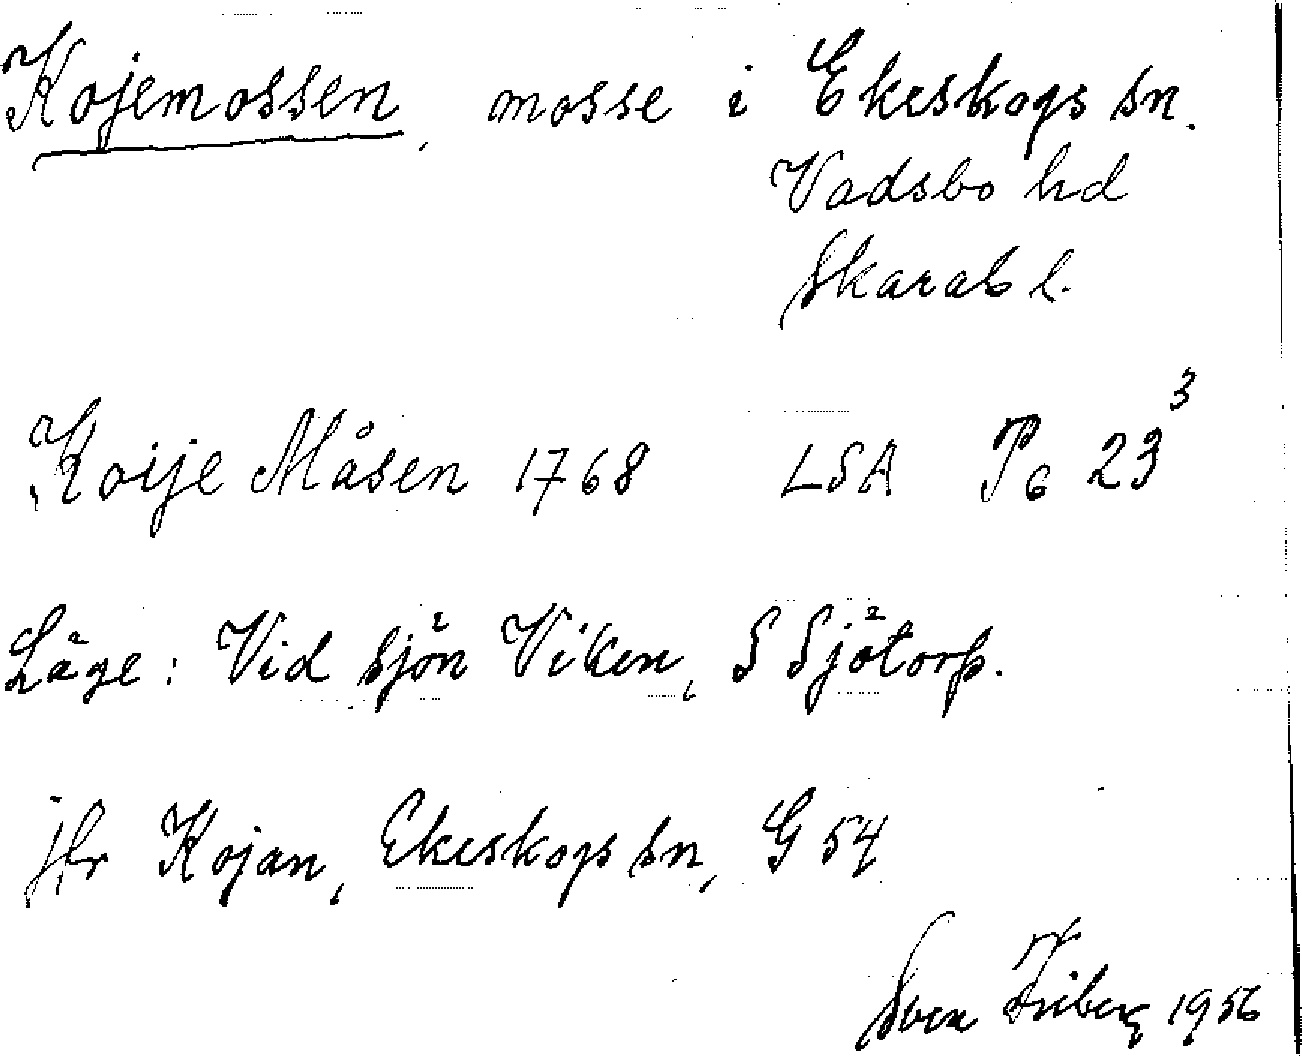 Kojemossen, mosse i Ekeskogs sn.
Vadsbo hd
Skarab l.
Koije Måsen 1768 LSA P6 23³
Läge: Vid sjön Viken, S Sjötorp.
jfr Kojan, Ekeskogs sn, G 54
Sven Friberg 1956